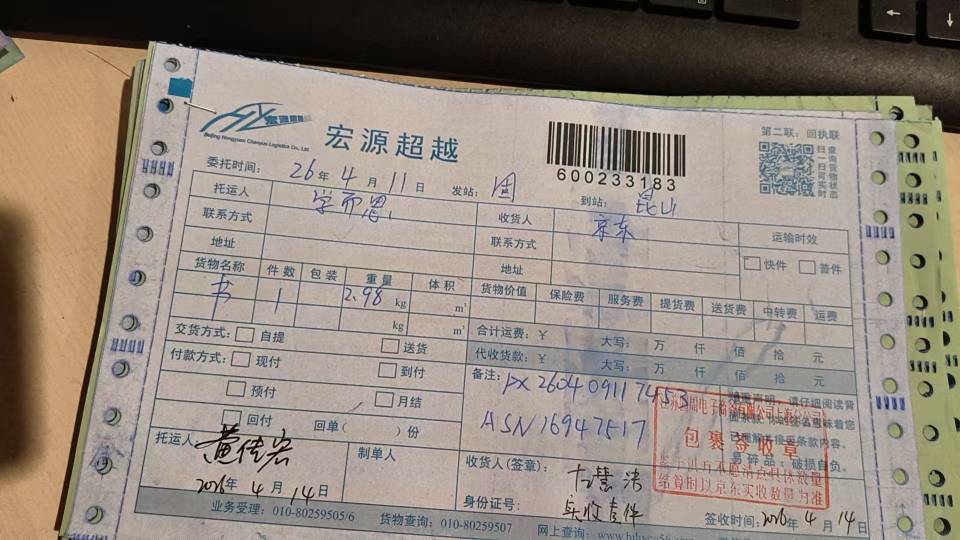 宏源
Beijing Hongyuan Chaoyue Logistics Co., Ltd.
宏源超越
600233183
第二联:回执联
扫一扫可实时
查询货物状态
委托时间: 26年 4月 11日 发站: 固 到站: 昆山
托运人 学而思 收货人 京东
联系方式 联系方式 运输时效
地址 地址 快件 普件
货物名称 件数 包装 重量 体积 货物价值 保险费 服务费 提货费 送货费 中转费 运费
书 1 2.98 kg m³
kg m³ 合计运费:¥ 大写: 万 仟 佰 拾 元
交货方式: 自提 送货 代收货款:¥ 大写: 万 仟 佰 拾 元
付款方式: 现付 到付 备注: PX26040911 74553
预付 月结 ASN16947517
回付 回单( )份
请仔细阅读背
包裹签收章
条款内容。
易碎品:破损自负。
结算时以京东实收数量为准
托运人 黄佳宏 制单人 收货人(签章):
2026年 4月 14日 身份证号: 实收壹件 签收时间: 2026年 4月 14日
业务受理:010-80259505/6 货物查询:010-80259507 网上查询: